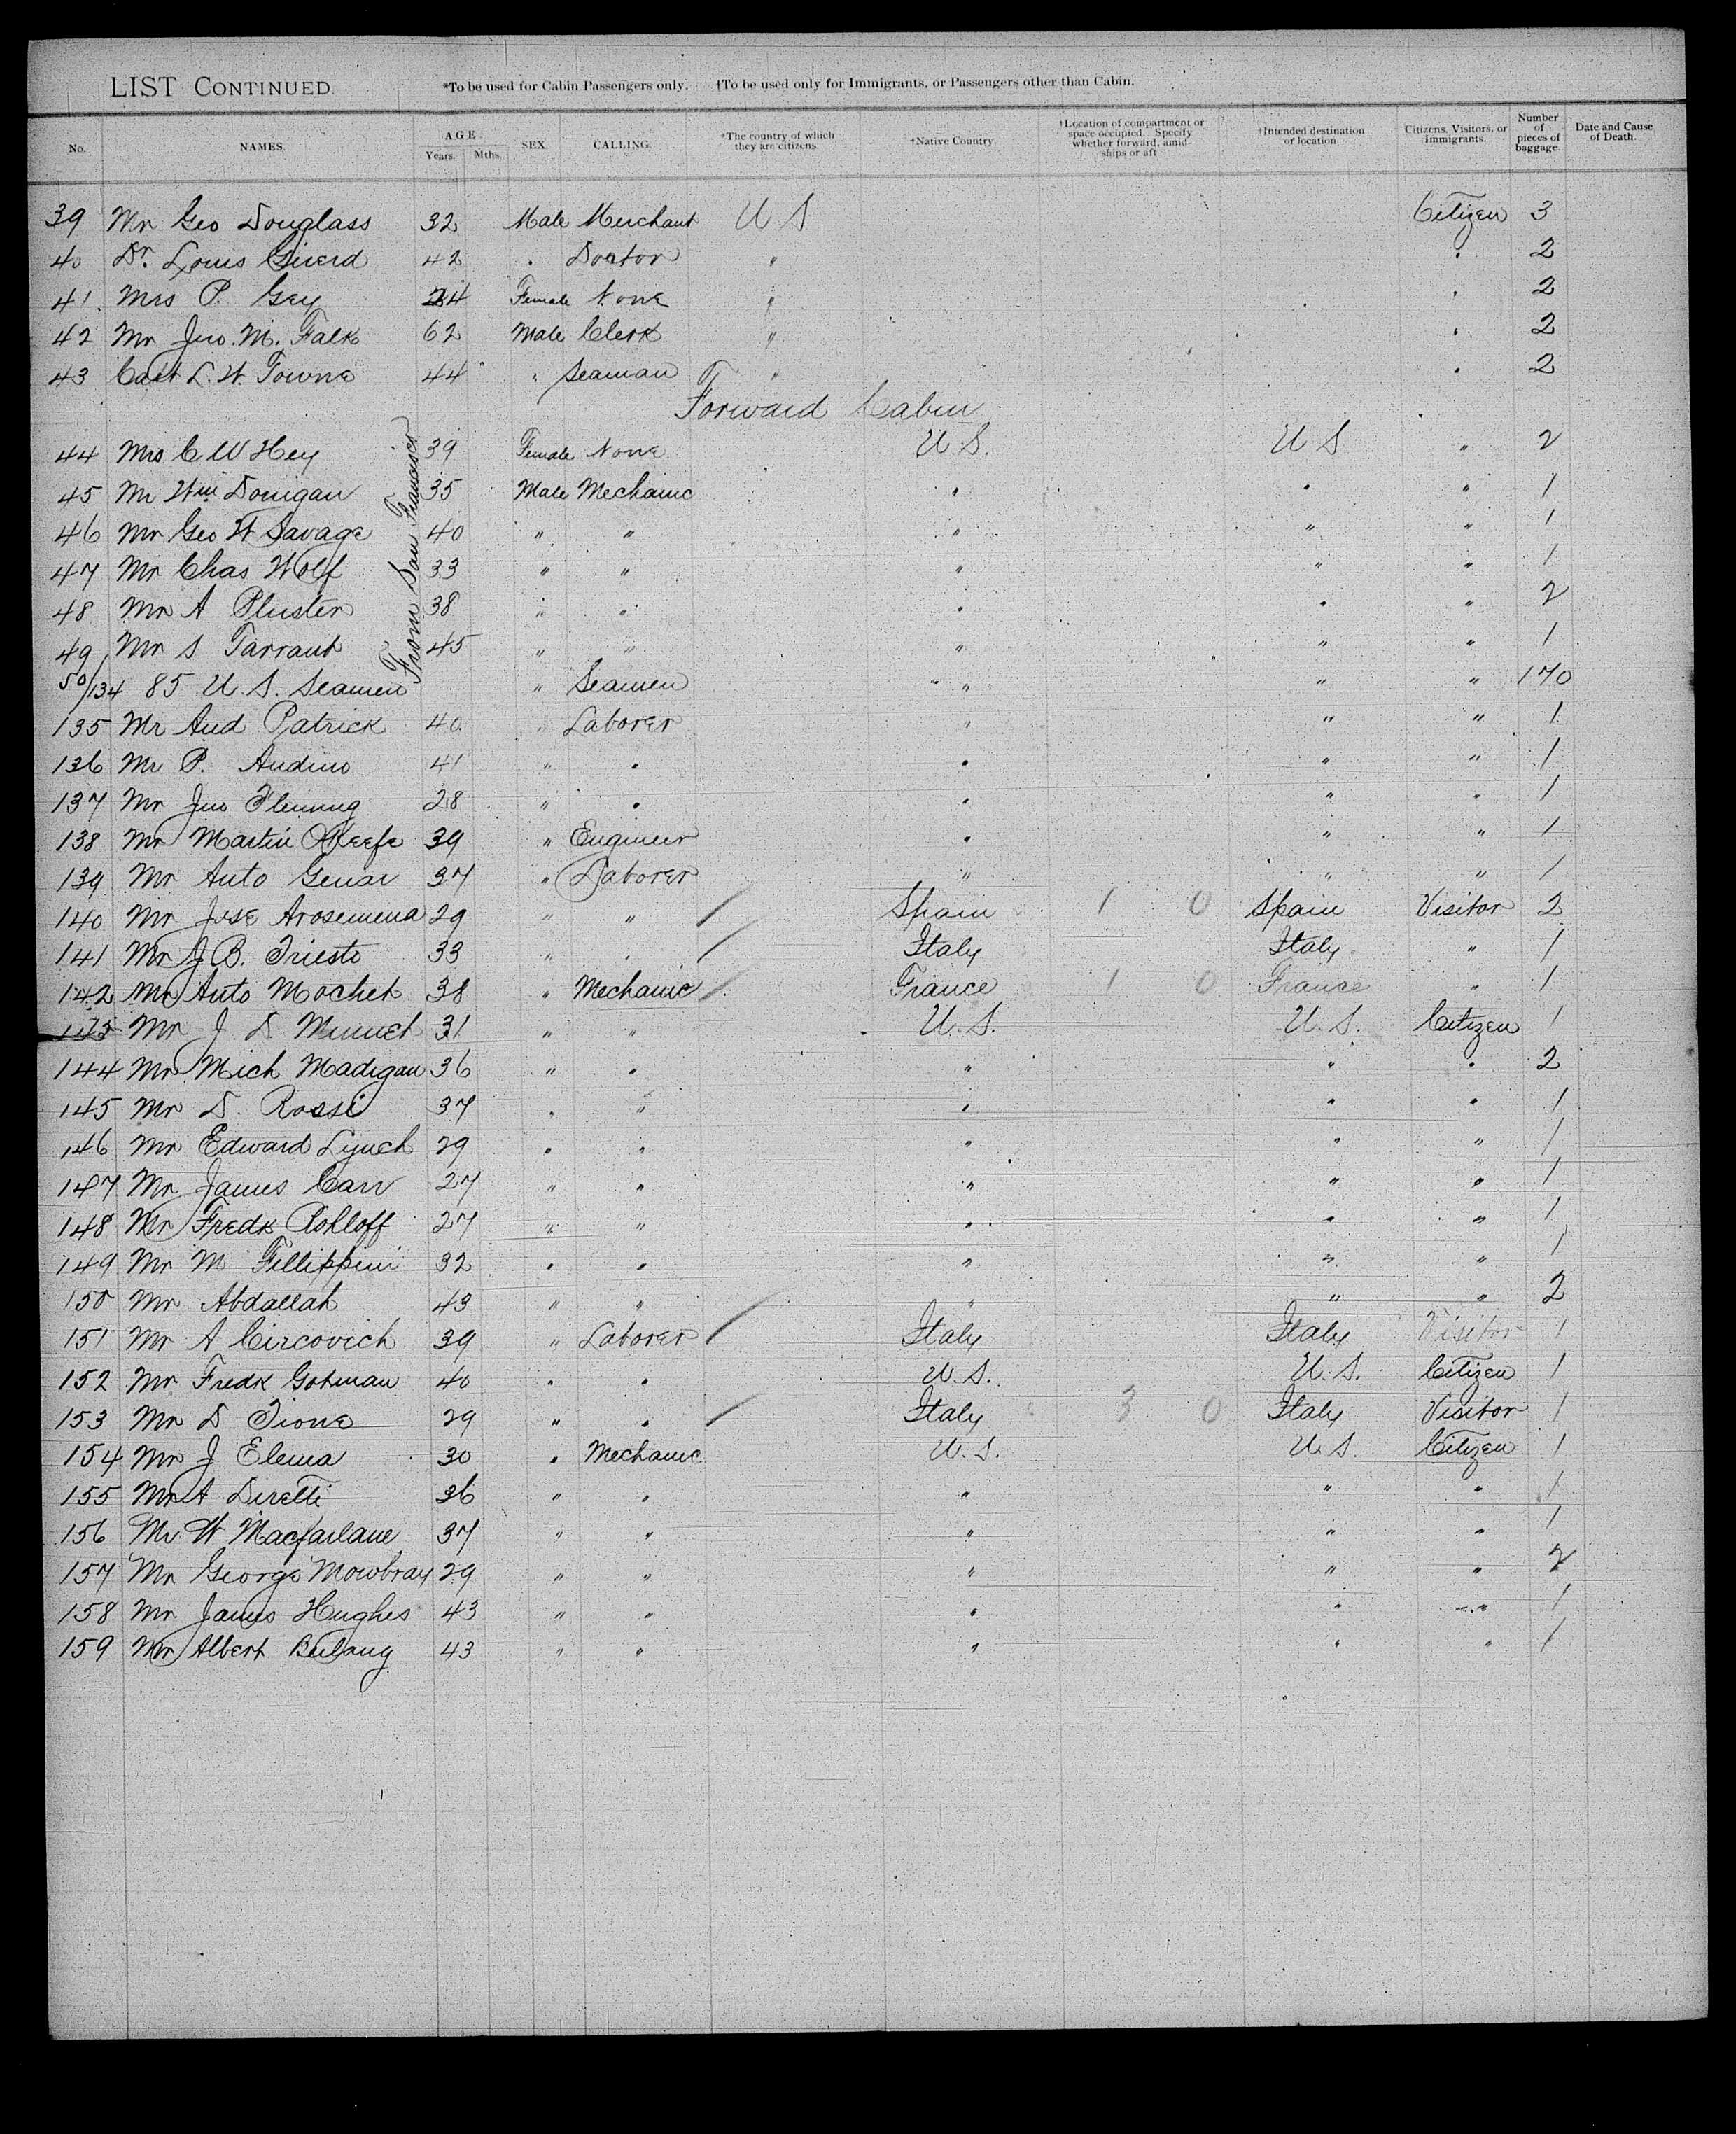 LIST CONTINUED. *To be used for Cabin Passengers only. †To be used only for Immigrants, or Passengers other than Cabin.
No. NAMES. AGE. Years. Mths. SEX. CALLING. *The country of which they are citizens. †Native Country. †Location of compartment or space occupied. Specify whether forward, amidships or aft †Intended destination or location Citizens, Visitors, or Immigrants. Number of pieces of baggage. Date and Cause of Death.
39 Mr Geo Douglass 32 Male Merchant U S Citizen 3
40 Dr. Louis 42 " Doctor " " 2
41 Mrs P. Gey Female None " " 2
42 Mr Jno. M. Falk 62 Male Clerk " " 2
43 Capt L. W. Towne 44 " Seaman " " 2
Forward Cabin
From San Francisco
44 Mrs C W Hey 39 Female None U.S. U S " 2
45 Mr Wm Donigan 35 Male Mechanic " " " 1
46 Mr Geo W Savage 40 " " " " " 1
47 Mr Chas Wolf 33 " " " " " 1
48 Mr A Pluster 38 " " " " " 2
49 Mr S Tarrant 45 " " " " " 1
50/134 85 U.S. Seamen " Seamen " " " 170
135 Mr And Patrick 40 " Laborer " " " 1
136 Mr P. Andino 41 " " " " " 1
137 Mr Jno Fleming 28 " " " " " 1
138 Mr Martin O'Keefe 39 " Engineer " " " 1
139 Mr Anto Genar 37 " Laborer " " " 1
140 Mr Jose Arosemena 29 " " / Spain 1 0 Spain Visitor 2
141 Mr J B. Triesto 33 " " / Italy Italy " 1
142 Mr Anto Mochet 38 " Mechanic / France 1 0 France " 1
Mr J D 31 " " U.S. U.S. Citizen 1
144 Mr Mich Madigan 36 " " " " " 2
145 Mr D. Rossi 37 " " " " " 1
146 Mr Edward Lynch 29 " " " " " 1
147 Mr James Carr 27 " " " " " 1
148 Mr Fredk Rohloff 27 " " " " " 1
149 Mr M Fillippini 32 " " " " " 1
150 Mr Abdallah 43 " " " " " 2
151 Mr A Circovich 39 " Laborer / Italy Italy Visitor 1
152 Mr Fredk Gohman 40 " " U.S. U.S. Citizen 1
153 Mr D Tione 29 " " / Italy 3 0 Italy Visitor 1
154 Mr J Elema 30 " Mechanic U.S. U S. Citizen 1
155 Mr A Diretti 36 " " " " " 1
156 Mr W Macfarlane 37 " " " " " 1
157 Mr George Mowbray 29 " " " " " 2
158 Mr James Hughes 43 " " " " " 1
159 Mr Albert 43 " " " " " 1